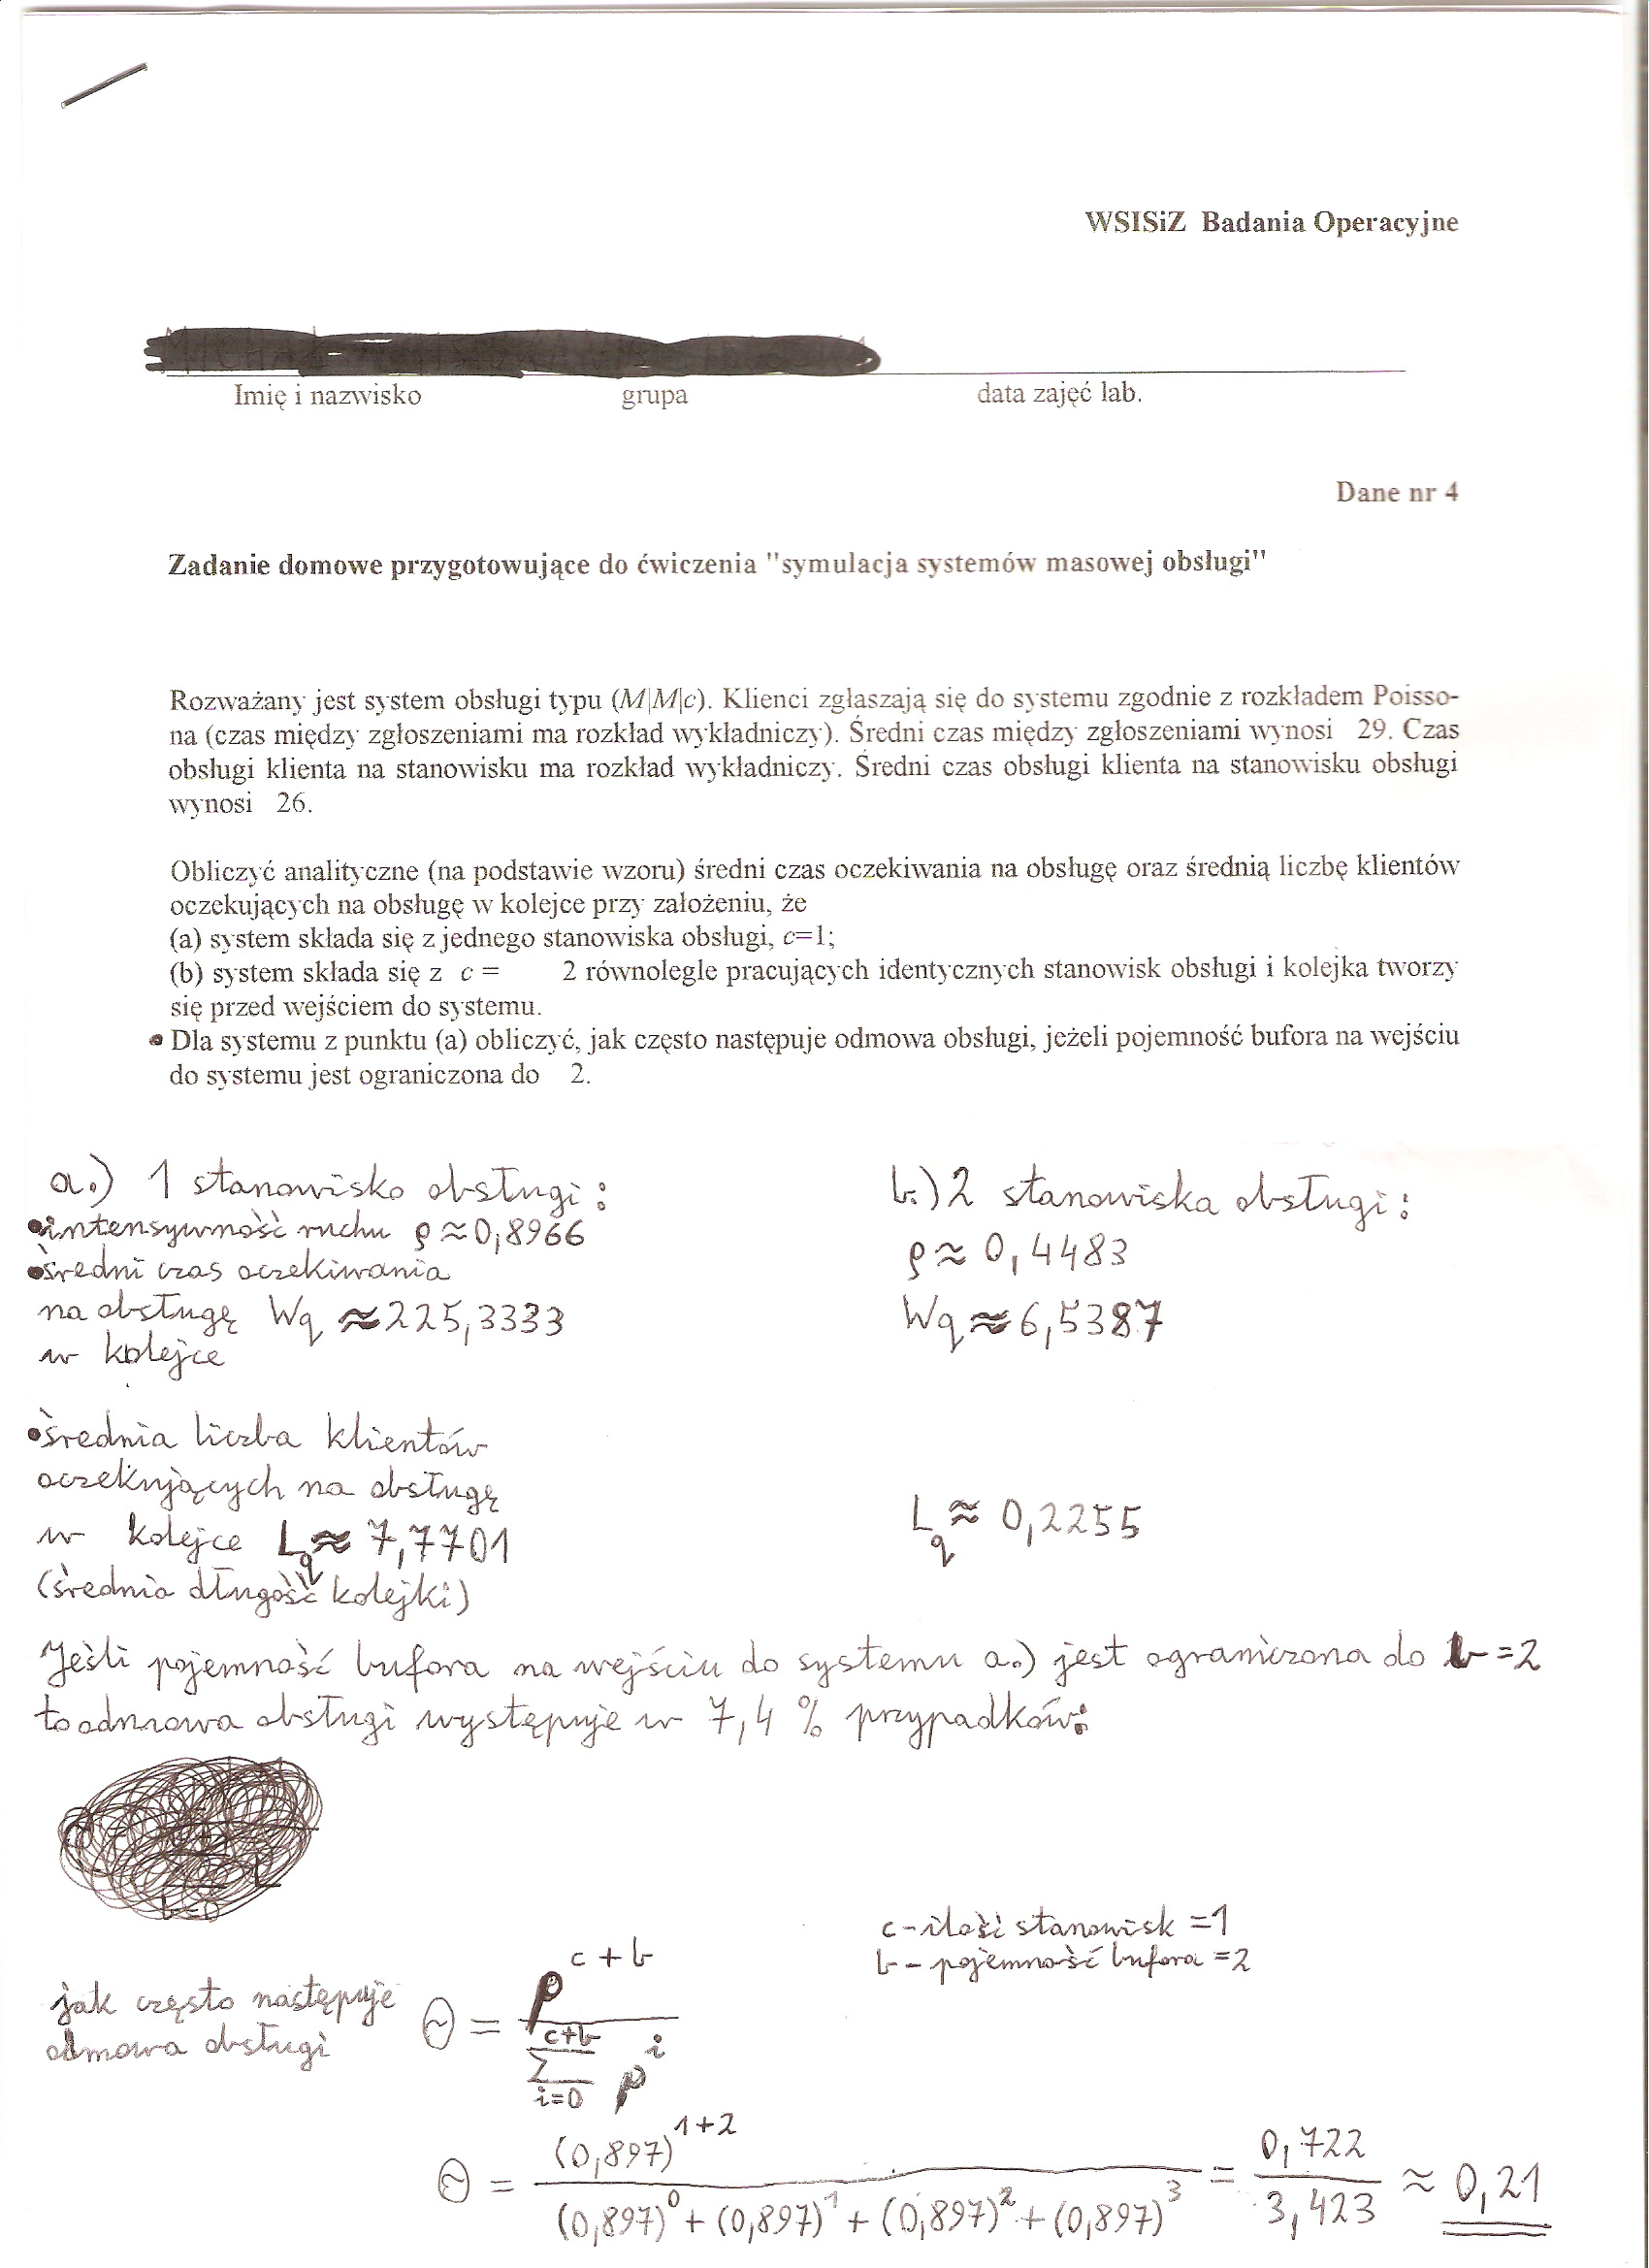 WSISiZ Badania Operacyjne
Imię i nazwisko grupa data zajęć lab.
Dane nr 4
Zadanie domowe przygotowujące do ćwiczenia "symulacja systemów masowej obsługi"
Rozważany jest system obsługi typu (M|M|c). Klienci zgłaszają się do systemu zgodnie z rozkładem Poisso-
na (czas między zgłoszeniami ma rozkład wykładniczy). Średni czas między zgłoszeniami wynosi 29. Czas
obsługi klienta na stanowisku ma rozkład wykładniczy. Średni czas obsługi klienta na stanowisku obsługi
wynosi 26.
Obliczyć analityczne (na podstawie wzoru) średni czas oczekiwania na obsługę oraz średnią liczbę klientów
oczekujących na obsługę w kolejce przy założeniu, że
(a) system składa się z jednego stanowiska obsługi, c=1;
(b) system składa się z c = 2 równolegle pracujących identycznych stanowisk obsługi i kolejka tworzy
się przed wejściem do systemu.
• Dla systemu z punktu (a) obliczyć, jak często następuje odmowa obsługi, jeżeli pojemność bufora na wejściu
do systemu jest ograniczona do 2.
a.) 1 stanowisko obsługi:
• intensywność ruchu ρ ≈ 0,8966
• średni czas oczekiwania
na obsługę Wq ≈ 225,3333
w kolejce
• średnia liczba klientów
oczekujących na obsługę
w kolejce Lq ≈ 7,7701
(średnia długość kolejki)
b.) 2 stanowiska obsługi:
ρ ≈ 0,4483
Wq ≈ 6,5387
Lq ≈ 0,2255
Jeśli pojemność bufora na wejściu do systemu a.) jest ograniczona do b=2
to odmowa obsługi występuje w 7,4 % przypadków:
c - ilość stanowisk = 1
b - pojemność bufora = 2
jak często następuje
odmowa obsługi
Θ = ρ^(c+b) / Σ_(i=0)^(c+b) ρ^i
Θ = (0,897)^(1+2) / ((0,897)^0 + (0,897)^1 + (0,897)^2 + (0,897)^3) = 0,722 / 3,423 ≈ 0,21